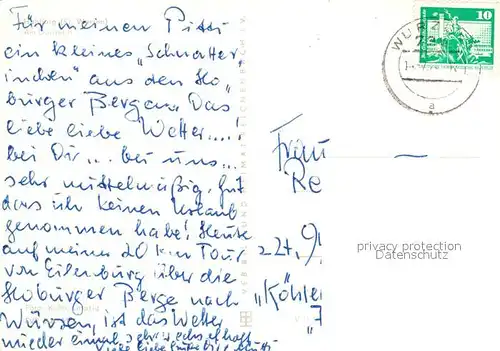 Für meinen Pitti
ein kleines „Schnatter
inchen" aus den Ho
burger Bergen. Das
liebe liebe Wetter....!
bei Dir... bei uns...
sehr mittelmäßig, gut
dass ich keinen Urlaub
genommen habe! Heute
auf meiner 20 km Tour
von Eilenburg über die
Hoburger Berge nach
Wurzen, ist das Wetter
wieder einmal sehr
viele liebe
WURZ
a
10
Frau
Re
„Köhler
privacy protection
Datenschutz
VEB BILD UND HEIMAT REICHENBACH I. V.